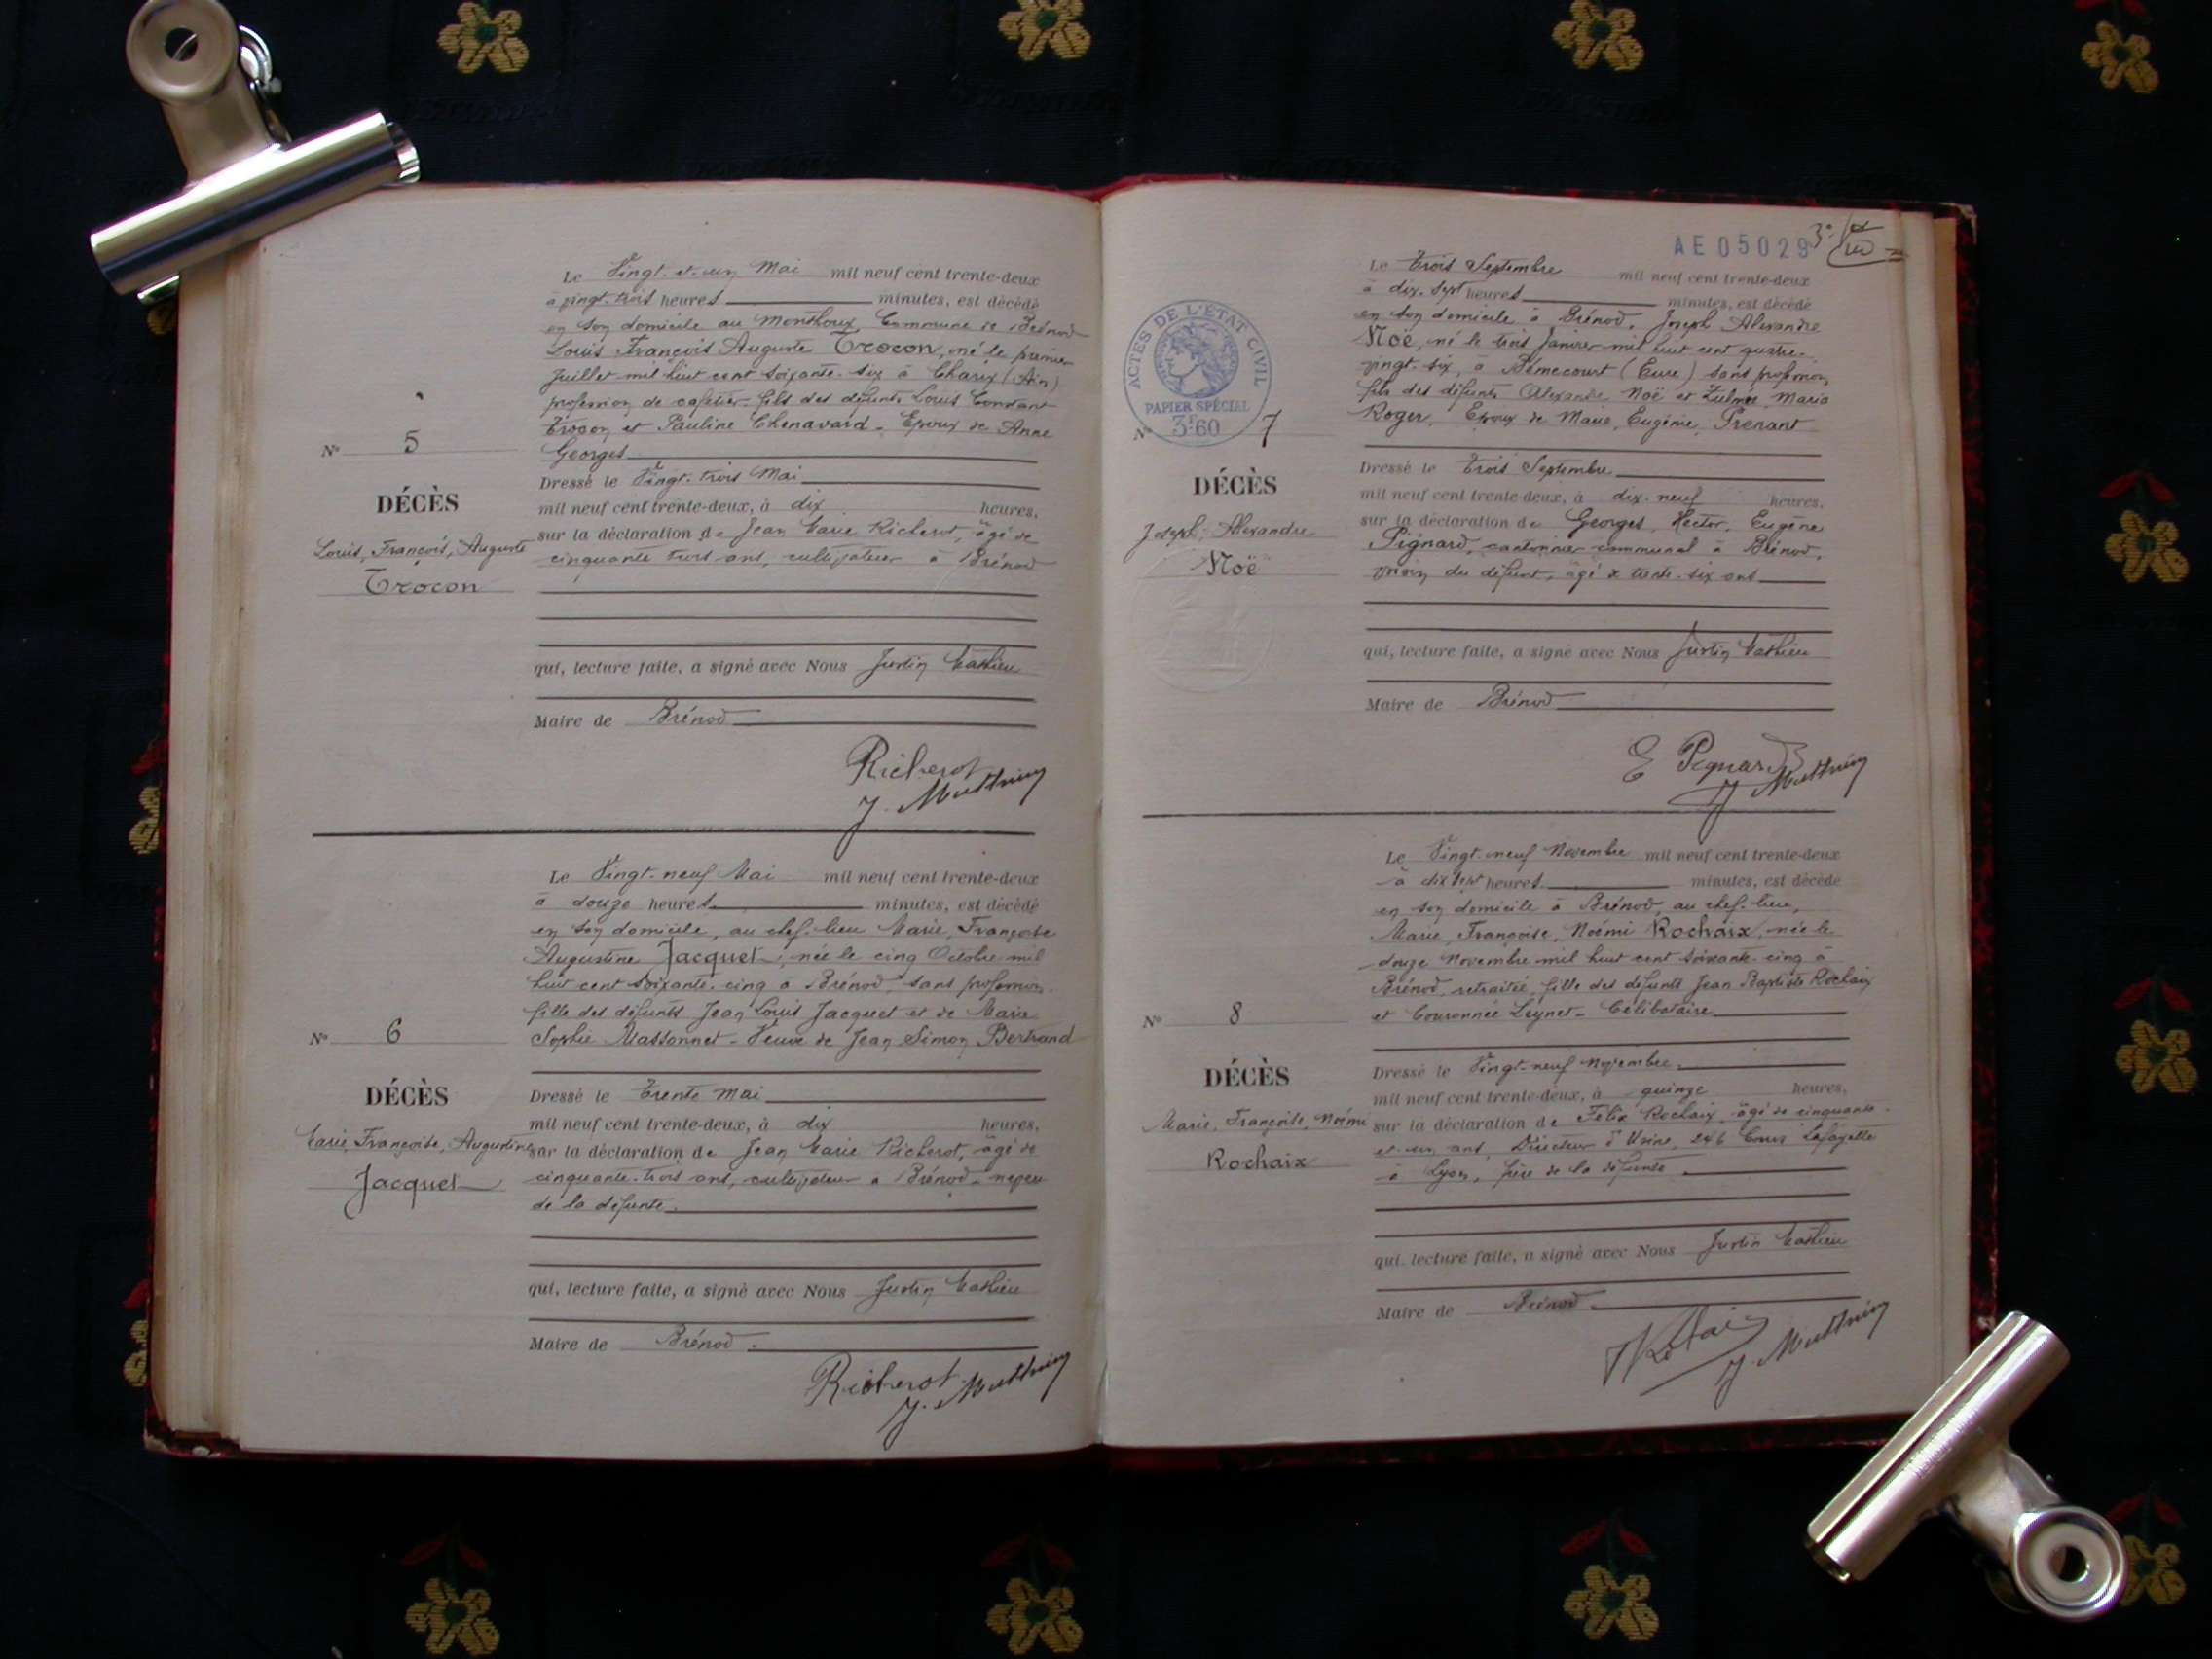 Le Vingt-et-un Mai mil neuf cent trente-deux
à vingt-trois heures minutes, est décédé
en son domicile au Monthoux, Commune de Brénod
Louis François Auguste Trocon, né le premier
Juillet mil huit cent soixante-six à Charix (Ain)
profession de cafetier. fils des défunts Louis Constant
Trocon et Pauline Chenavard - Epoux de Anne
Georges
Dressé le Vingt-trois Mai
mil neuf cent trente-deux, à dix heures,
sur la déclaration de Jean Marie Richerot, âgé de
cinquante trois ans, cultivateur à Brénod
qui, lecture faite, a signé avec Nous Justin Mathieu
Maire de Brénod
N° 5
DÉCÈS
Louis, François, Auguste
Trocon
Richerot
J. Matthieu
Le Vingt-neuf Mai mil neuf cent trente-deux
à douze heures minutes, est décédé
en son domicile, au chef-lieu Marie, Françoise
Augustine Jacquet, née le cinq Octobre mil
huit cent soixante-cinq à Brénod, sans profession.
fille des défunts Jean Louis Jacquet et de Marie
Sophie Massonnet - Veuve de Jean Simon Bertrand
Dressé le Trente Mai
mil neuf cent trente-deux, à dix heures,
sur la déclaration de Jean Marie Richerot, âgé de
cinquante-trois ans, cultivateur à Brénod - neveu
de la défunte.
qui, lecture faite, a signé avec Nous Justin Mathieu
Maire de Brénod.
N° 6
DÉCÈS
Marie, Françoise, Augustine
Jacquet
Richerot
J. Matthieu
AE 05029
ACTES DE L'ÉTAT CIVIL
PAPIER SPÉCIAL
3F60
Le Trois Septembre mil neuf cent trente-deux
à dix-sept heures minutes, est décédé
en son domicile à Brénod, Joseph Alexandre
Noë, né le trois Janvier mil huit cent quatre-
vingt-six, à Bémecourt (Eure) sans profession,
fils des défunts Alexandre Noë et Zulmée Maria
Roger, Epoux de Marie, Eugénie, Prenant
Dressé le Trois Septembre
mil neuf cent trente-deux, à dix-neuf heures,
sur la déclaration de Georges, Hector, Eugène
Pignard, cantonnier communal à Brénod,
voisin du défunt, âgé de trente-six ans
qui, lecture faite, a signé avec Nous Justin Mathieu
Maire de Brénod
N° 7
DÉCÈS
Joseph, Alexandre
Noë
E Pignard
J Matthieu
Le Vingt-neuf Novembre mil neuf cent trente-deux
à dix sept heures minutes, est décédé
en son domicile à Brénod, au chef-lieu,
Marie, Françoise, Noémi Rochaix, née le
douze Novembre mil huit cent soixante-cinq à
Brénod, retraitée, fille des défunts Jean Baptiste Rochaix
et Couronnée Leynet - Célibataire
Dressé le Vingt-neuf Novembre
mil neuf cent trente-deux, à quinze heures,
sur la déclaration de Félix Rochaix, âgé de cinquante-
et-un ans, Directeur d'Usine, 246 Cours Lafayette
à Lyon, frère de la défunte
qui, lecture faite, a signé avec Nous Justin Mathieu
Maire de Brénod
N° 8
DÉCÈS
Marie, Françoise, Noémi
Rochaix
J. Matthieu